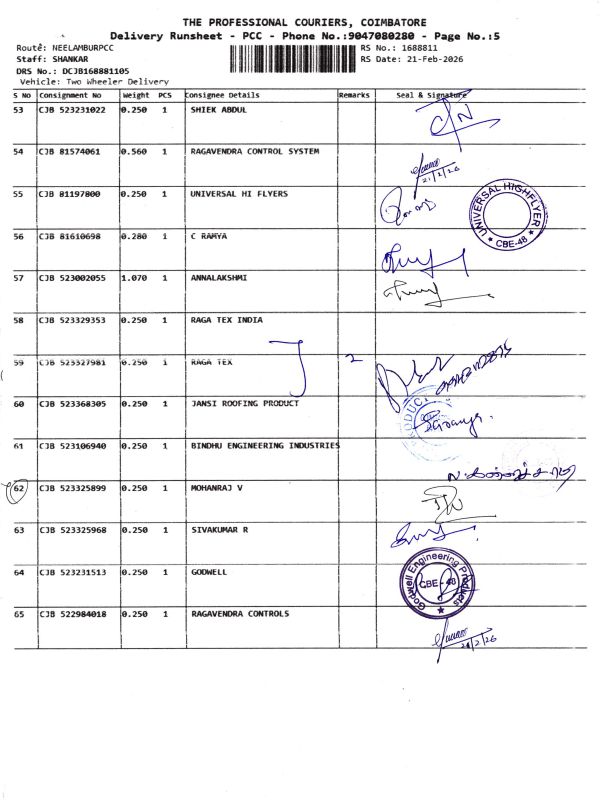 THE PROFESSIONAL COURIERS, COIMBATORE
Delivery Runsheet - PCC - Phone No.:9047080280 - Page No.:5
Route: NEELAMBURPCC
RS No.: 1688811
Staff: SHANKAR
RS Date: 21-Feb-2026
DRS No.: DCJB168881105
Vehicle: Two Wheeler Delivery
S No Consignment No Weight PCS Consignee Details Remarks Seal & Signature
53 CJB 523231022 0.250 1 SHIEK ABDUL
54 CJB 81574061 0.560 1 RAGAVENDRA CONTROL SYSTEM
21/2/26
55 CJB 81197800 0.250 1 UNIVERSAL HI FLYERS
UNIVERSAL HIGHFLYER
★ CBE-48 ★
56 CJB 81610698 0.280 1 C RAMYA
57 CJB 523002055 1.070 1 ANNALAKSHMI
58 CJB 523329353 0.250 1 RAGA TEX INDIA
59 CJB 523327981 0.250 1 RAGA TEX 2
60 CJB 523368305 0.250 1 JANSI ROOFING PRODUCT
61 CJB 523106940 0.250 1 BINDHU ENGINEERING INDUSTRIES
62 CJB 523325899 0.250 1 MOHANRAJ V
63 CJB 523325968 0.250 1 SIVAKUMAR R
64 CJB 523231513 0.250 1 GODWELL
Godwell Engineering Products
CBE - 48
★
65 CJB 522984018 0.250 1 RAGAVENDRA CONTROLS
21/2/26